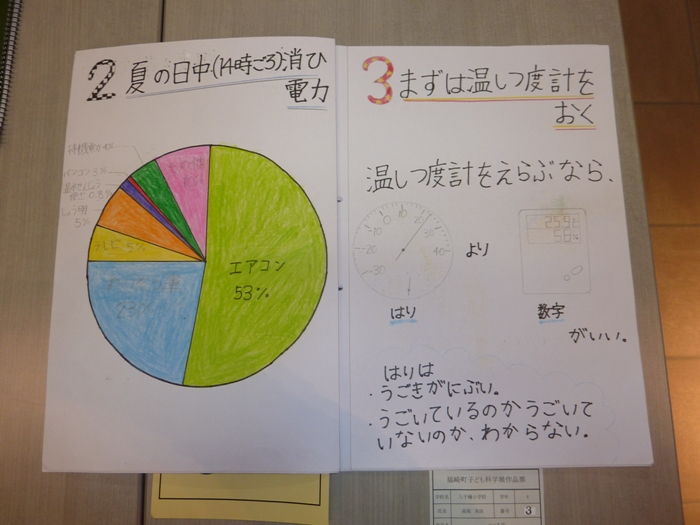 2 夏の日中(14時ごろ)消ひ
電力
待機電力 4%
パソコン 3%
しょう明
5%
テレビ 5%
エアコン
53%
23%
3 まずは温しつ度計を
おく
温しつ度計をえらぶなら、
より
はり
数字
がいい。
はりは
・うごきがにぶい。
・うごいているのかうごいて
いないのか、わからない。
福崎町子ども科学展作品票
3